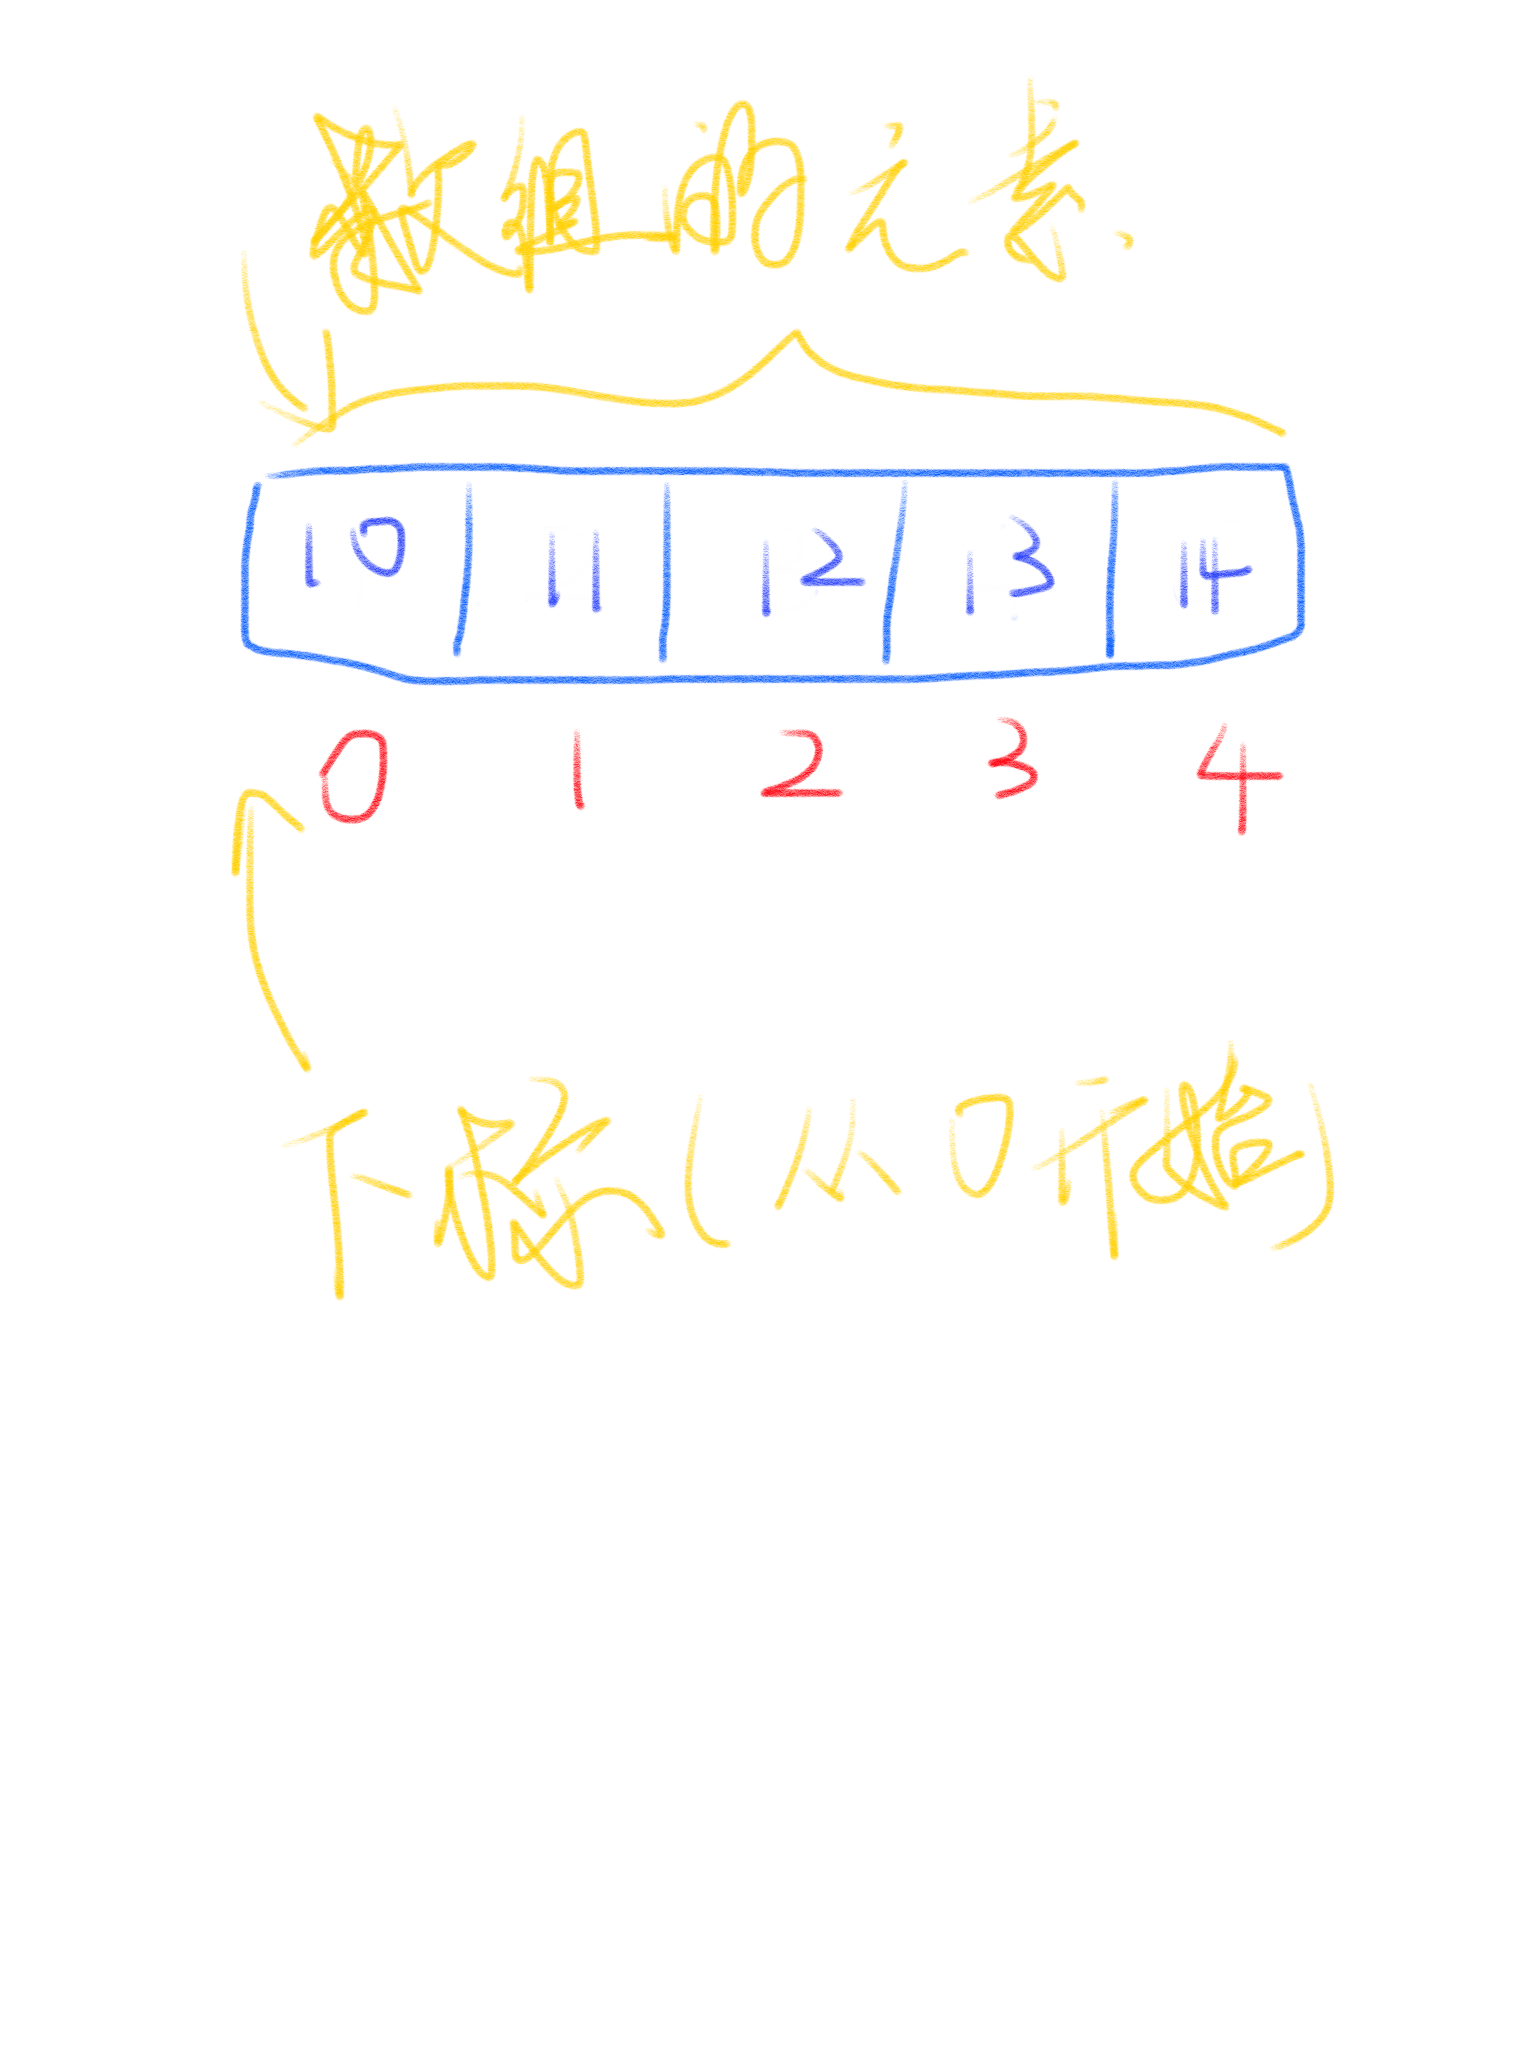 数组的元素.
10 11 12 13 14
0 1 2 3 4
下标(从0开始)